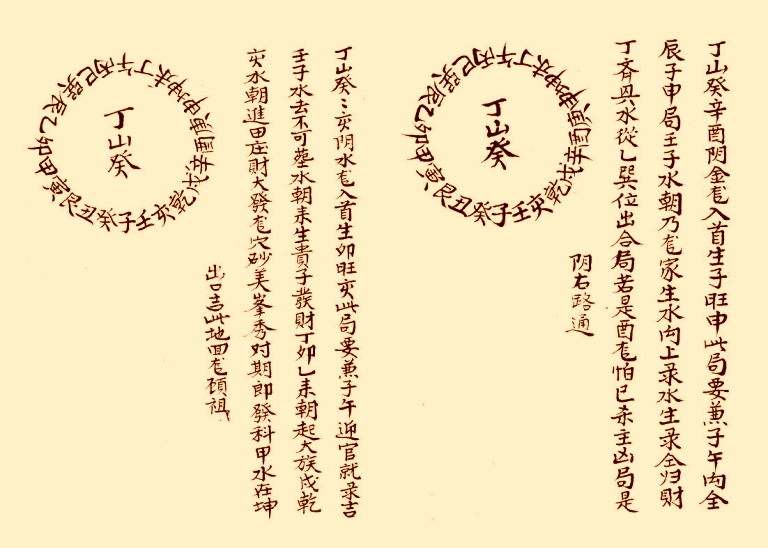 丁山癸辛酉阴金龙入首生子旺申此局要兼子午向全
辰子申局壬子水朝乃龙家生水向上录水生录仝归財
丁斉巽水從乙巽位出合局若是酉龙怕巳杀主凶局是
阴右路通
丁山癸
壬子癸丑艮寅甲卯乙辰巽巳丙午丁未坤申庚酉辛戌乾亥
丁山癸〻亥阴水龙入首生卯旺亥此局要兼子午迎官就录吉
壬子水去不可塟水朝来生貴子發財丁卯乙未朝起大族戌乾
亥水朝進田庄財大發龙穴砂美峯秀对期即發科甲水在坤
出口吉此地回龙頋祖
丁山癸
壬子癸丑艮寅甲卯乙辰巽巳丙午丁未坤申庚酉辛戌乾亥